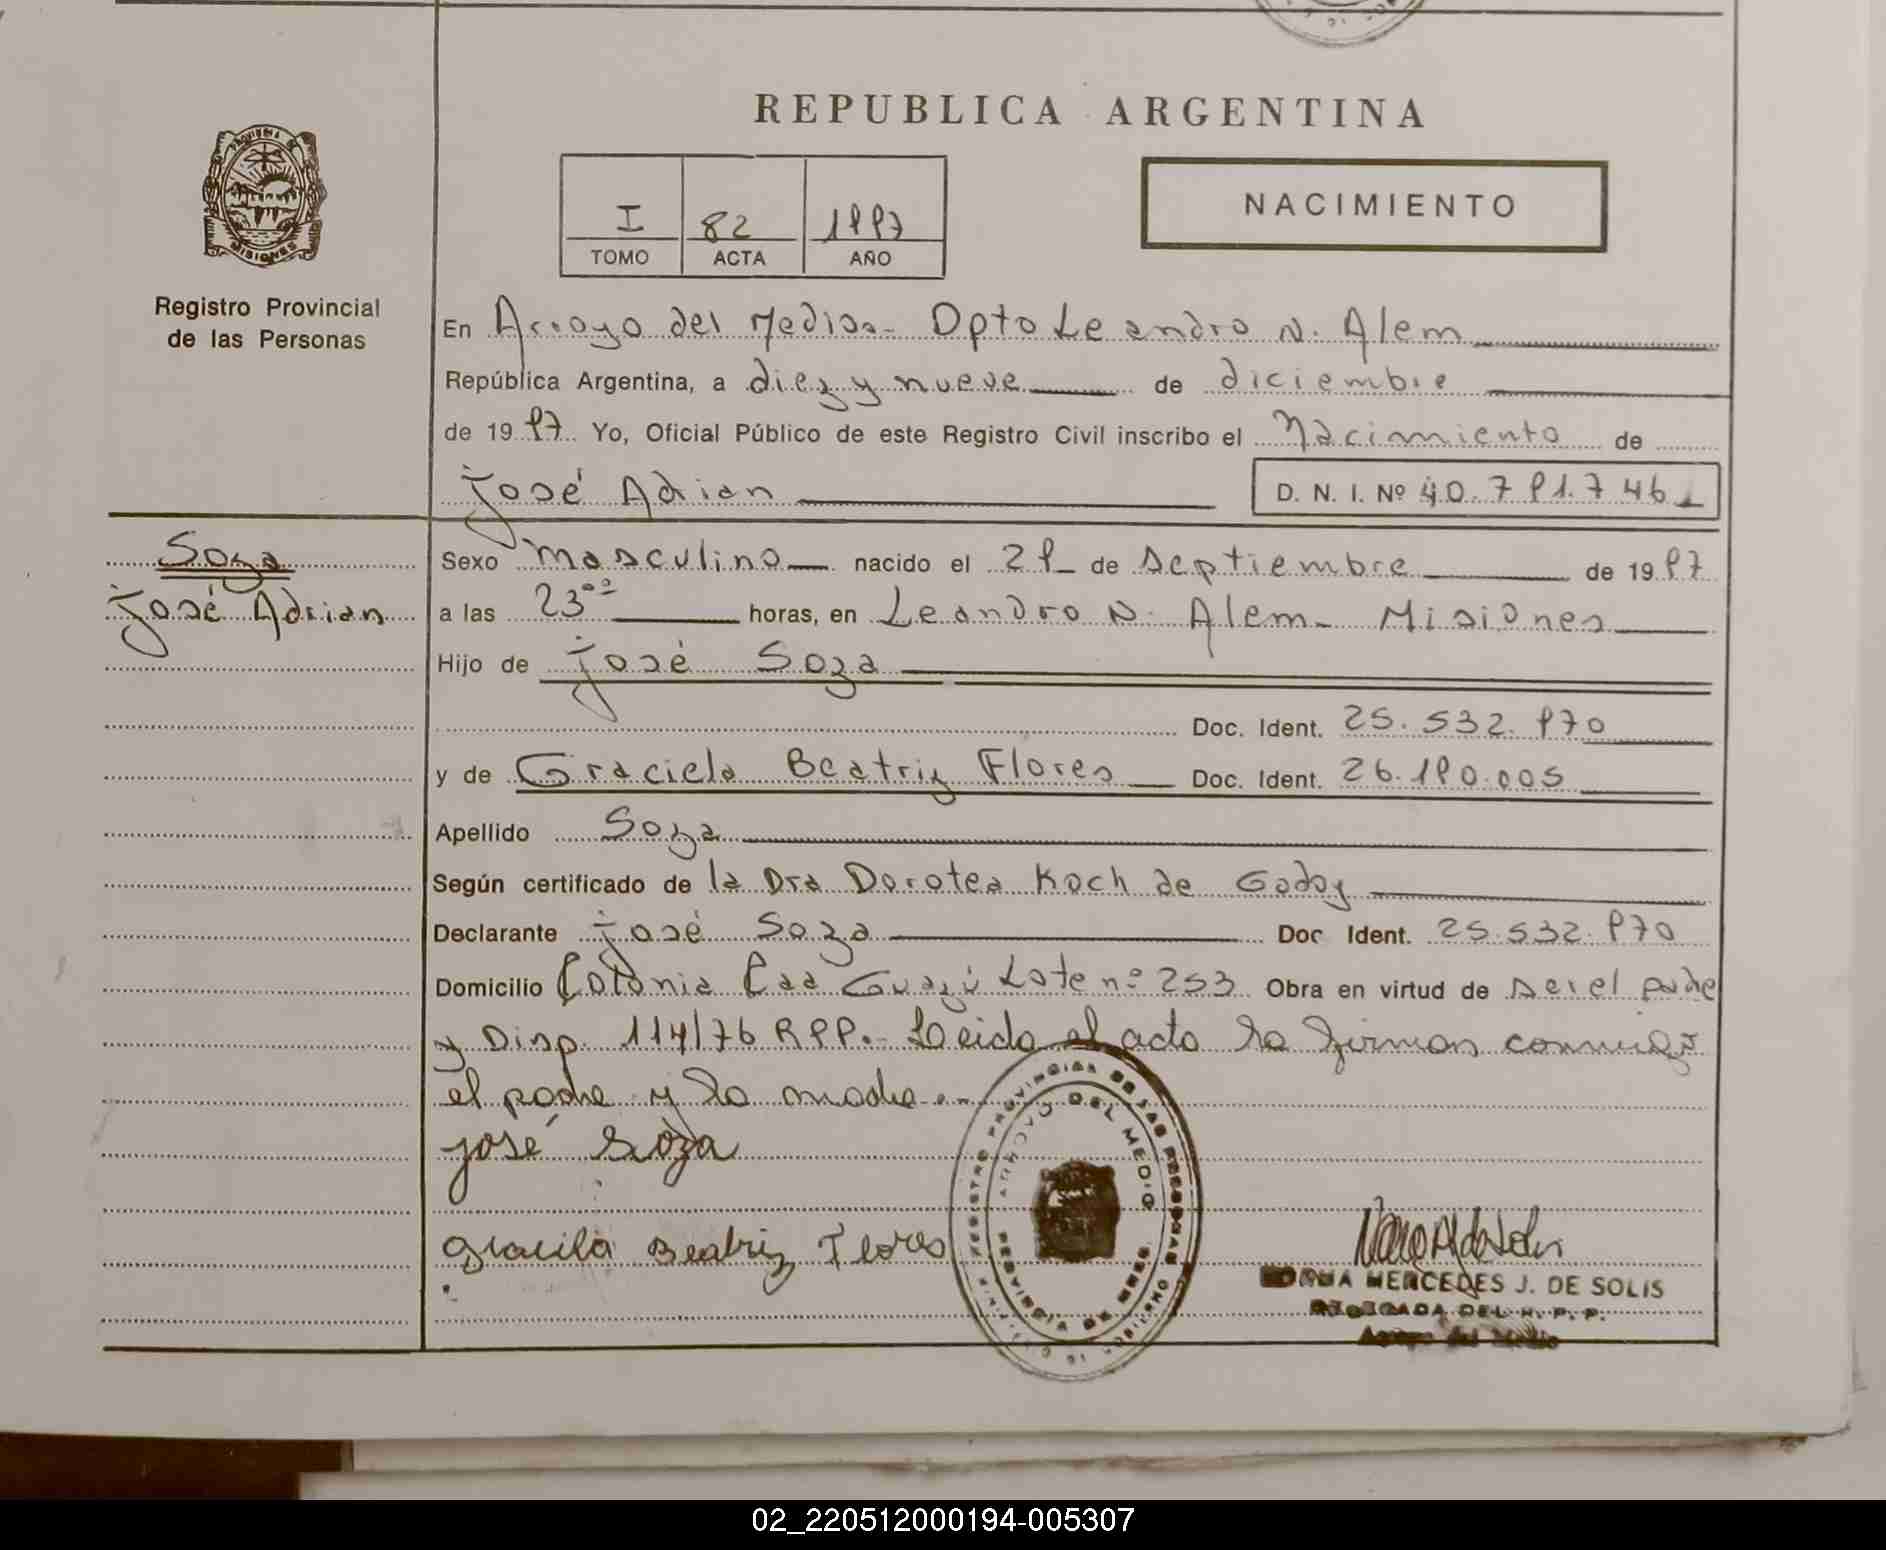 REPUBLICA ARGENTINA
PROVINCIA DE
MISIONES
Registro Provincial
de las Personas
I 82 1997
TOMO ACTA AÑO
NACIMIENTO
En Arroyo del Medio- Dpto Leandro N. Alem
República Argentina, a diez y nueve de diciembre
de 1997 Yo, Oficial Público de este Registro Civil inscribo el Nacimiento de
José Adrian D. N. I. Nº 40.791.746
Soza
José Adrian
Sexo masculino nacido el 29 de septiembre de 1997
a las 23⁰⁰ horas, en Leandro N. Alem- Misiones
Hijo de José Soza
Doc. Ident. 25.532.970
y de Graciela Beatriz Flores Doc. Ident. 26.190.005
Apellido Soza
Según certificado de la Dra Dorotea Koch de Godoy
Declarante José Soza Doc Ident. 25.532.970
Domicilio Colonia Caa Guazú Lote nº 253 Obra en virtud de ser el padre
y Disp. 114/76 RPP.- Leida el acta la firman conmigo
el padre y la madre.-
José Soza
Graciela Beatriz Flores
REGISTRO PROVINCIAL DE LAS PERSONAS
ARROYO DEL MEDIO
NORMA MERCEDES J. DE SOLIS
DELEGADA DEL R. P. P.
Arroyo del Medio
02_220512000194-005307